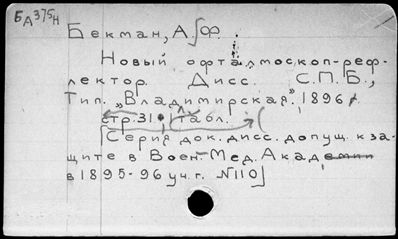 БА375Н
Бекман, А. Ф.
Новый офталмоскоп-реф-
лектор. Дисс. С.П.Б.,
Тип. „Владимирская", 1896.
стр. 31. 1 табл.
[Серия док. дисс. допущ. к за-
щите в Воен.-Мед. Акад
в 1895-96 уч. г. №110]